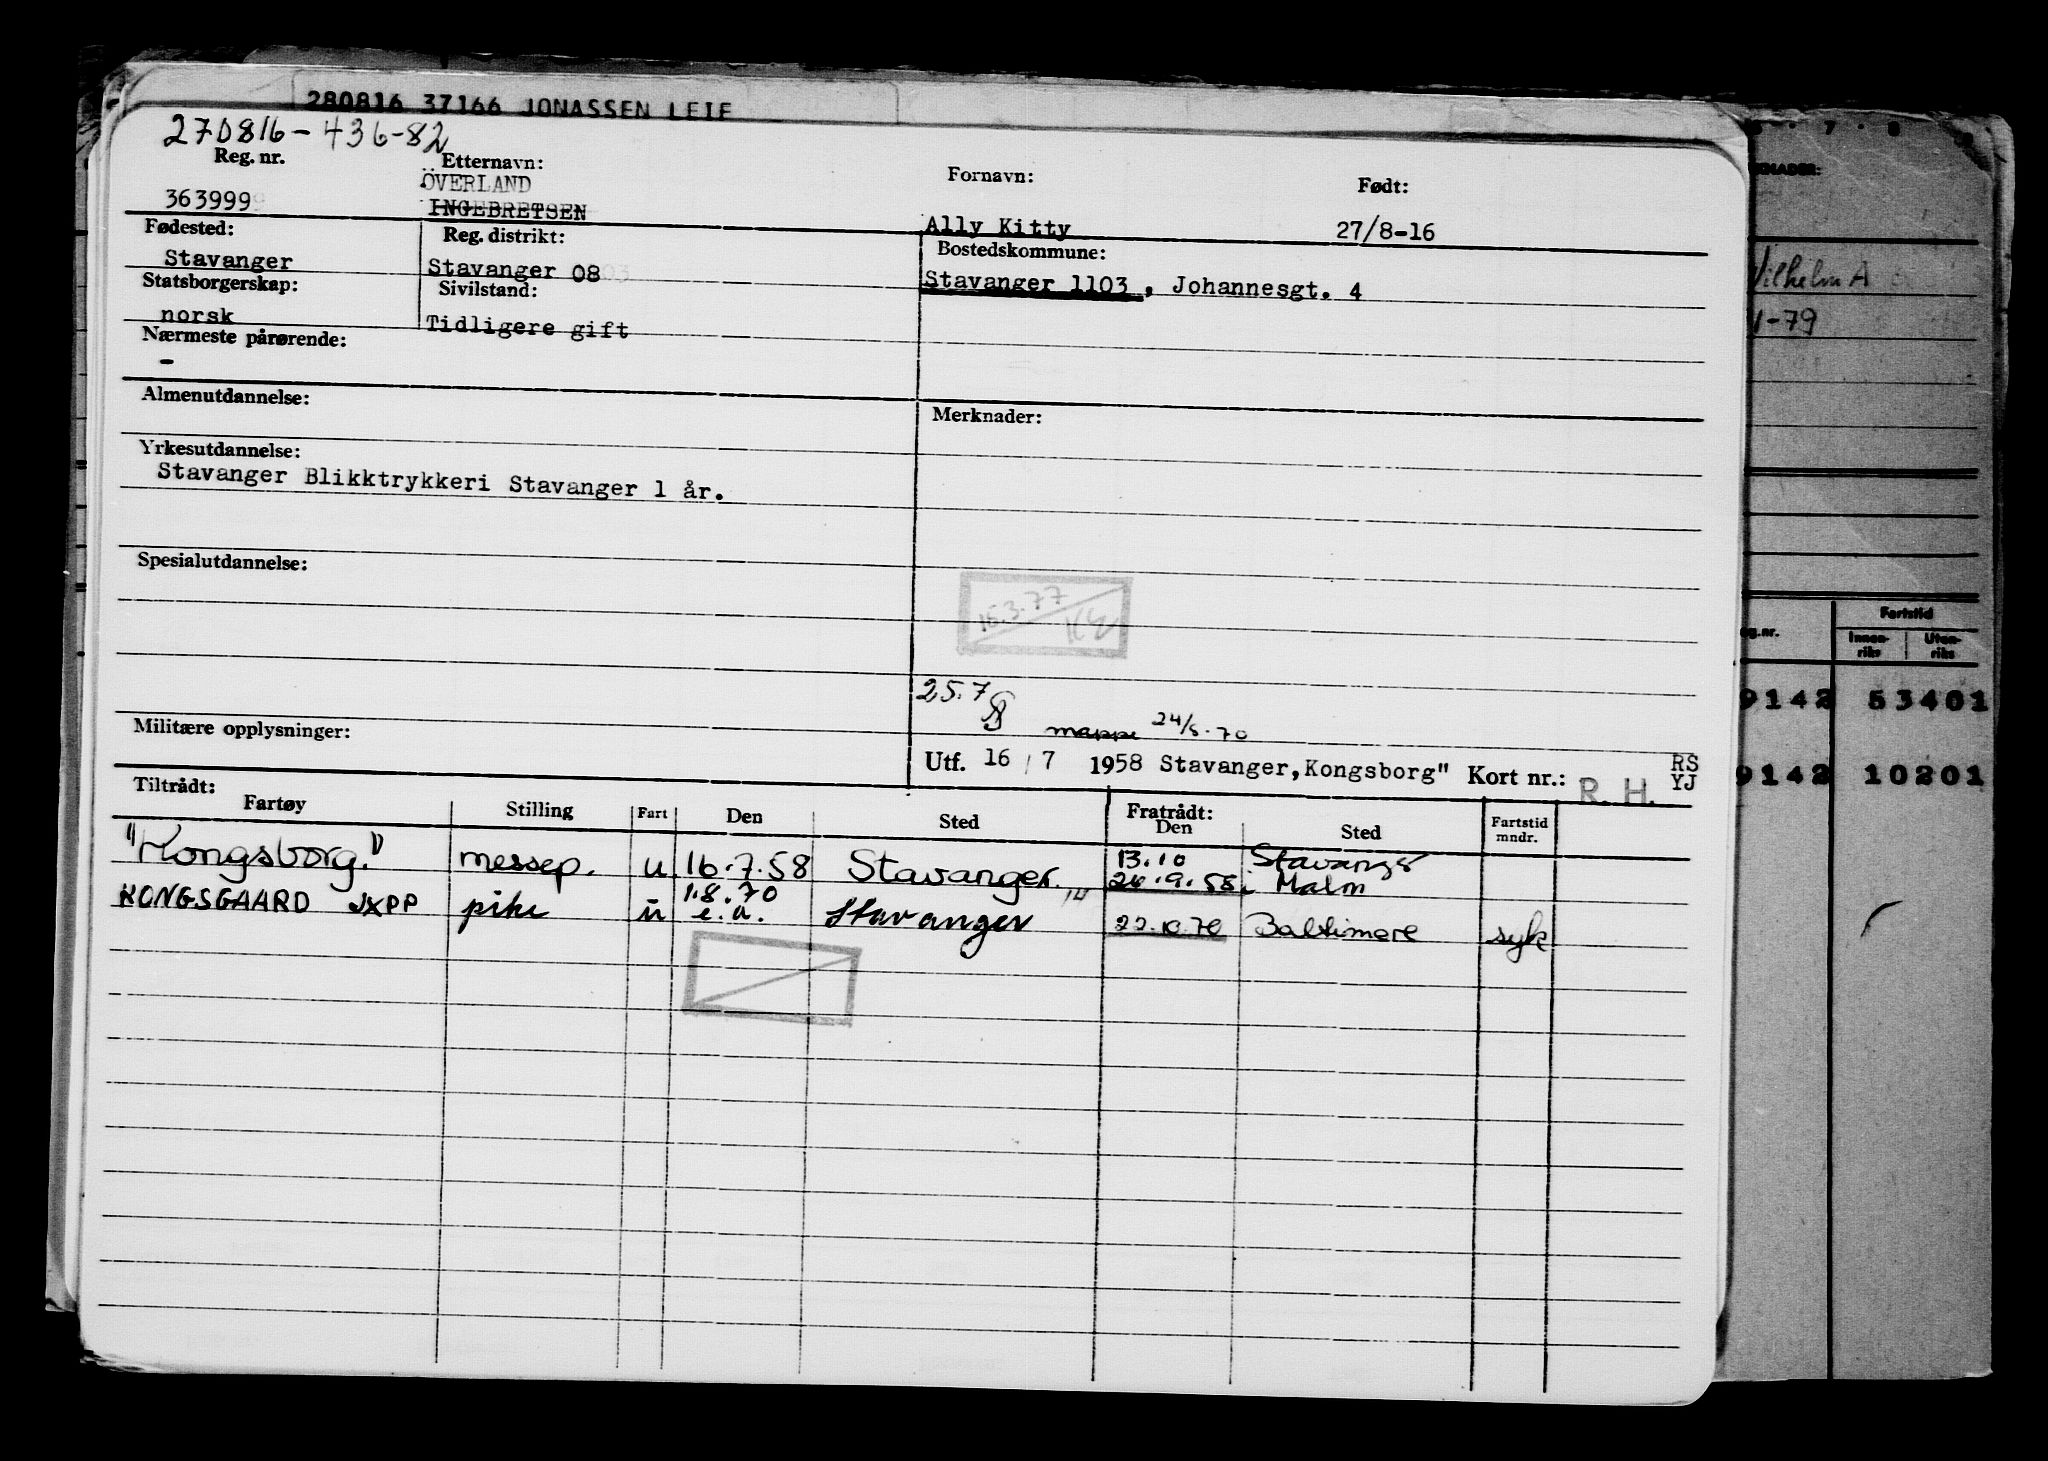 280816 37166 JONASSEN LEIF
270816-436-82
Reg. nr. Etternavn: Fornavn: Født:
ÖVERLAND
363999 INGEBRETSEN Ally Kitty 27/8-16
Fødested: Reg. distrikt: Bostedskommune:
Stavanger Stavanger 08 Stavanger 1103, Johannesgt. 4
Statsborgerskap: Sivilstand:
norsk Tidligere gift
Nærmeste pårørende:
-
Almenutdannelse: Merknader:
Yrkesutdannelse:
Stavanger Blikktrykkeri Stavanger 1 år.
Spesialutdannelse:
16.3.77
25.7
mappe 24/8-70
Militære opplysninger:
Utf. 16 / 7 1958 Stavanger, Kongsborg" Kort nr.: R. H. RS
YJ
Tiltrådt: Fratrådt:
Fartøy Stilling Fart Den Sted Den Sted Fartstid mndr.
13.10 Stavanger
"Kongsborg." messep. u 16.7.58 Stavanger. 26.9.58 i Malm
KONGSGAARD JXPP pike u 1.8.70 e.a. Stavanger 22.10.70 Baltimore syk
6 . 7 . 8 9
KNADER:
Vilhelm A
1-79
Fartstid
eg.nr. Innen-riks Uten-riks
9142 53401
9142 10201